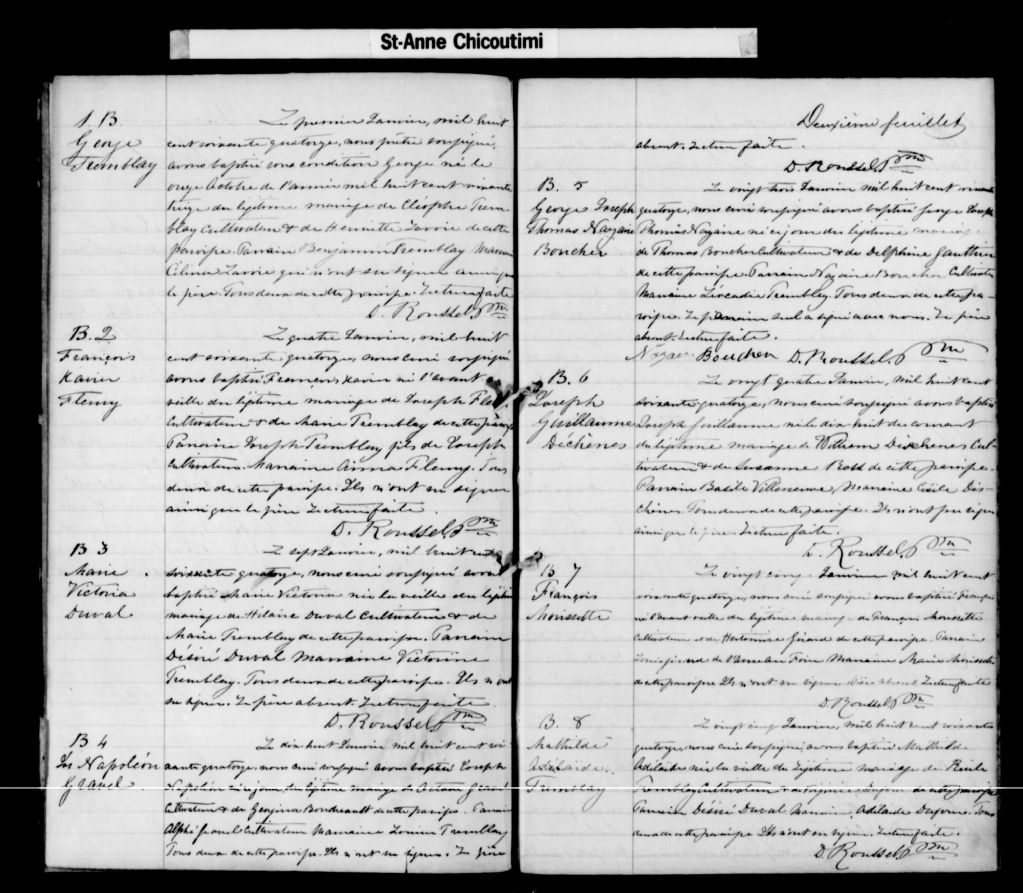 St-Anne Chicoutimi
1. B.
George
Tremblay
Le premier Janvier, mil huit
cent soixante quatorze, nous prêtre soussigné,
avons baptisé sous condition George né le
onze Octobre de l'année mil huit cent soixante
treize du légitime mariage de Cléophe Trem-
blay Cultivateur & de Henriette Lavoie de cette
paroisse. Parrain Benjamin Tremblay Marraine
Célina Lavoie qui n'ont su signer ainsi que
le père. Tous deux de cette paroisse. Lecture faite
D. Roussel, Ptre
B. 2
François
Xavier
Fleury
Le quatre Janvier, mil huit
cent soixante quatorze, nous curé soussigné
avons baptisé François Xavier né l'avant
veille du légitime mariage de Joseph
Cultivateur & de Marie Tremblay de cette paroisse
Parrain Joseph Tremblay fils de Joseph
Cultivateur. Marraine Anna Fleury. Tous
deux de cette paroisse. Ils n'ont su signer
ainsi que le père Lecture faite.
D. Roussel, Ptre
B 3
Marie
Victoria
Duval
Le sept Janvier, mil huit cent
soixante quatorze, nous curé soussigné avons
baptisé Marie Victoria née la veille du légitime
mariage de Hilaire Duval Cultivateur & de
Marie Tremblay de cette paroisse. Parrain
Désiré Duval Marraine Victorine
Tremblay. Tous deux de cette paroisse. Ils n'ont
su signer. Le père absent. Lecture faite.
D. Roussel, Ptre
B 4
Jos Napoléon
Gravel
Le dix huit Janvier, mil huit cent soi-
xante quatorze, nous curé soussigné avons baptisé Joseph
Napoléon né ce jour du légitime mariage de
Cultivateur & de Georgina Boudreault de cette paroisse. Parrain
Alphé Gravel Cultivateur Marraine Louise Tremblay
Tous deux de cette paroisse. Ils n'ont su signer. Le père
Deuxième feuillet
absent. Lecture faite.
D. Roussel, Ptre
B. 5
George Joseph
Thomas Nazaire
Boucher
Le vingt trois Janvier mil huit cent soixante
quatorze, nous curé soussigné avons baptisé George Joseph
Thomas Nazaire né ce jour du légitime mariage
de Thomas Boucher Cultivateur & de Delphine Gauthier
de cette paroisse. Parrain Nazaire Boucher Cultivateur
Marraine Léocadie Tremblay. Tous deux de cette pa-
roisse. Le parrain seul a signé avec nous. Le père
absent. Lecture faite.
Nazaire Boucher D. Roussel, Ptre
B. 6
Joseph
Guillaume
Dechênes
Le vingt quatre Janvier, mil huit cent
soixante quatorze, nous curé soussigné avons baptisé
Joseph Guillaume né le dix huit du courant
du légitime mariage de William Dechênes Cul-
tivateur & de Suzanne Ross de cette paroisse.
Parrain Basile Villeneuve, Marraine Cécile Des-
chênes. Tous deux de cette paroisse. Ils n'ont pu signer
ainsi que le père. Lecture faite.
D. Roussel, Ptre
B 7
François
Morissette
Le vingt cinq Janvier mil huit cent
soixante quatorze, nous curé soussigné avons baptisé François
né l'avant veille du légitime mariage de François Morissette
Cultivateur & de Girard de cette paroisse. Parrain
de l'Anse au Foin Marraine Marie Morissette
de cette paroisse Ils n'ont su signer. Père absent. Lecture faite
D. Roussel, Ptre
B. 8
Mathilde
Adélaide
Tremblay
Le vingt cinq Janvier, mil huit cent soixante
quatorze, nous curé soussigné avons baptisé Mathilde
Adélaide née la veille du légitime mariage de
Tremblay Cultivateur & de de cette paroisse
Parrain Désiré Duval Marraine Adélaide Tous
deux de cette paroisse Ils n'ont su signer. Lecture faite.
D. Roussel, Ptre